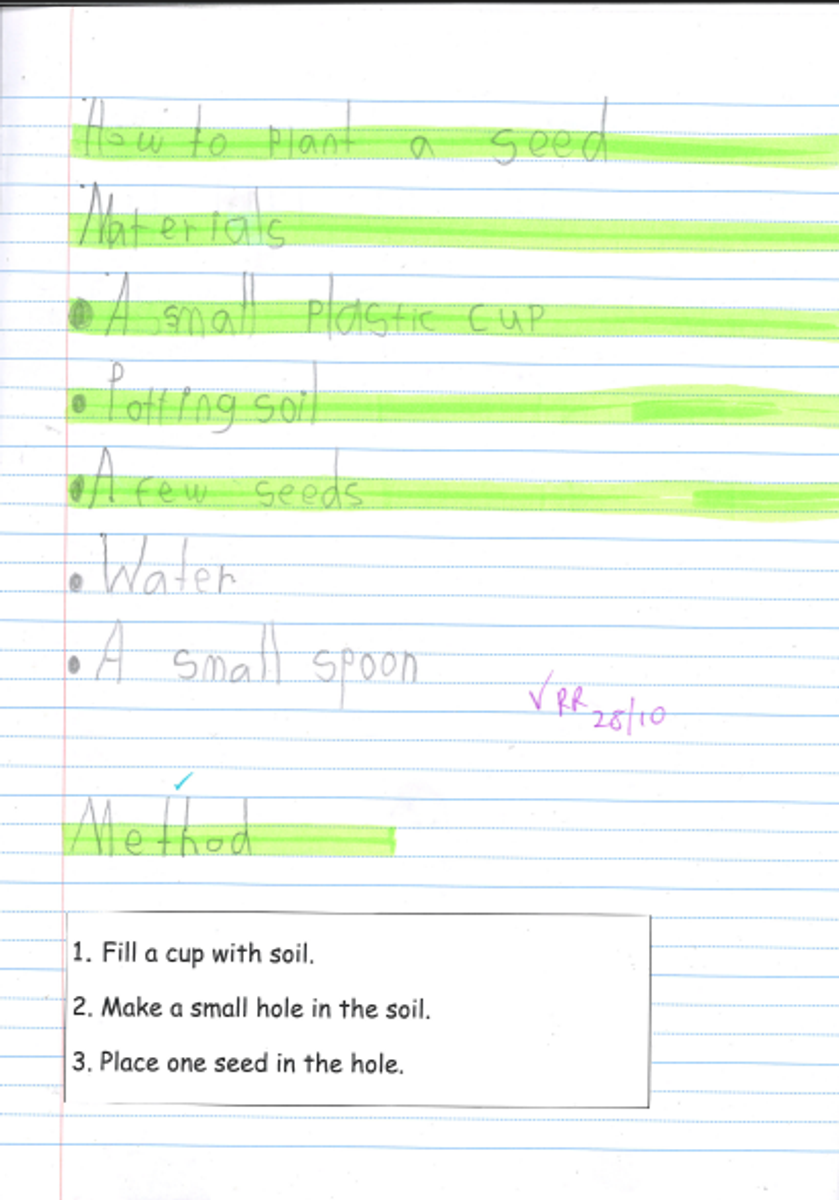 How to plant a seed
Materials
• A small plastic cup
• Potting soil
• A few seeds
• Water
• A small spoon
✓ RR 28/10
✓
Method
1. Fill a cup with soil.
2. Make a small hole in the soil.
3. Place one seed in the hole.